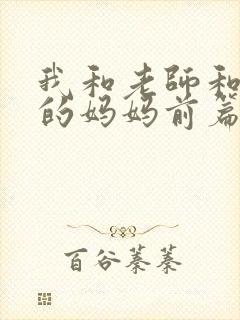 我和老師和
的妈妈前篇
百谷蓁蓁